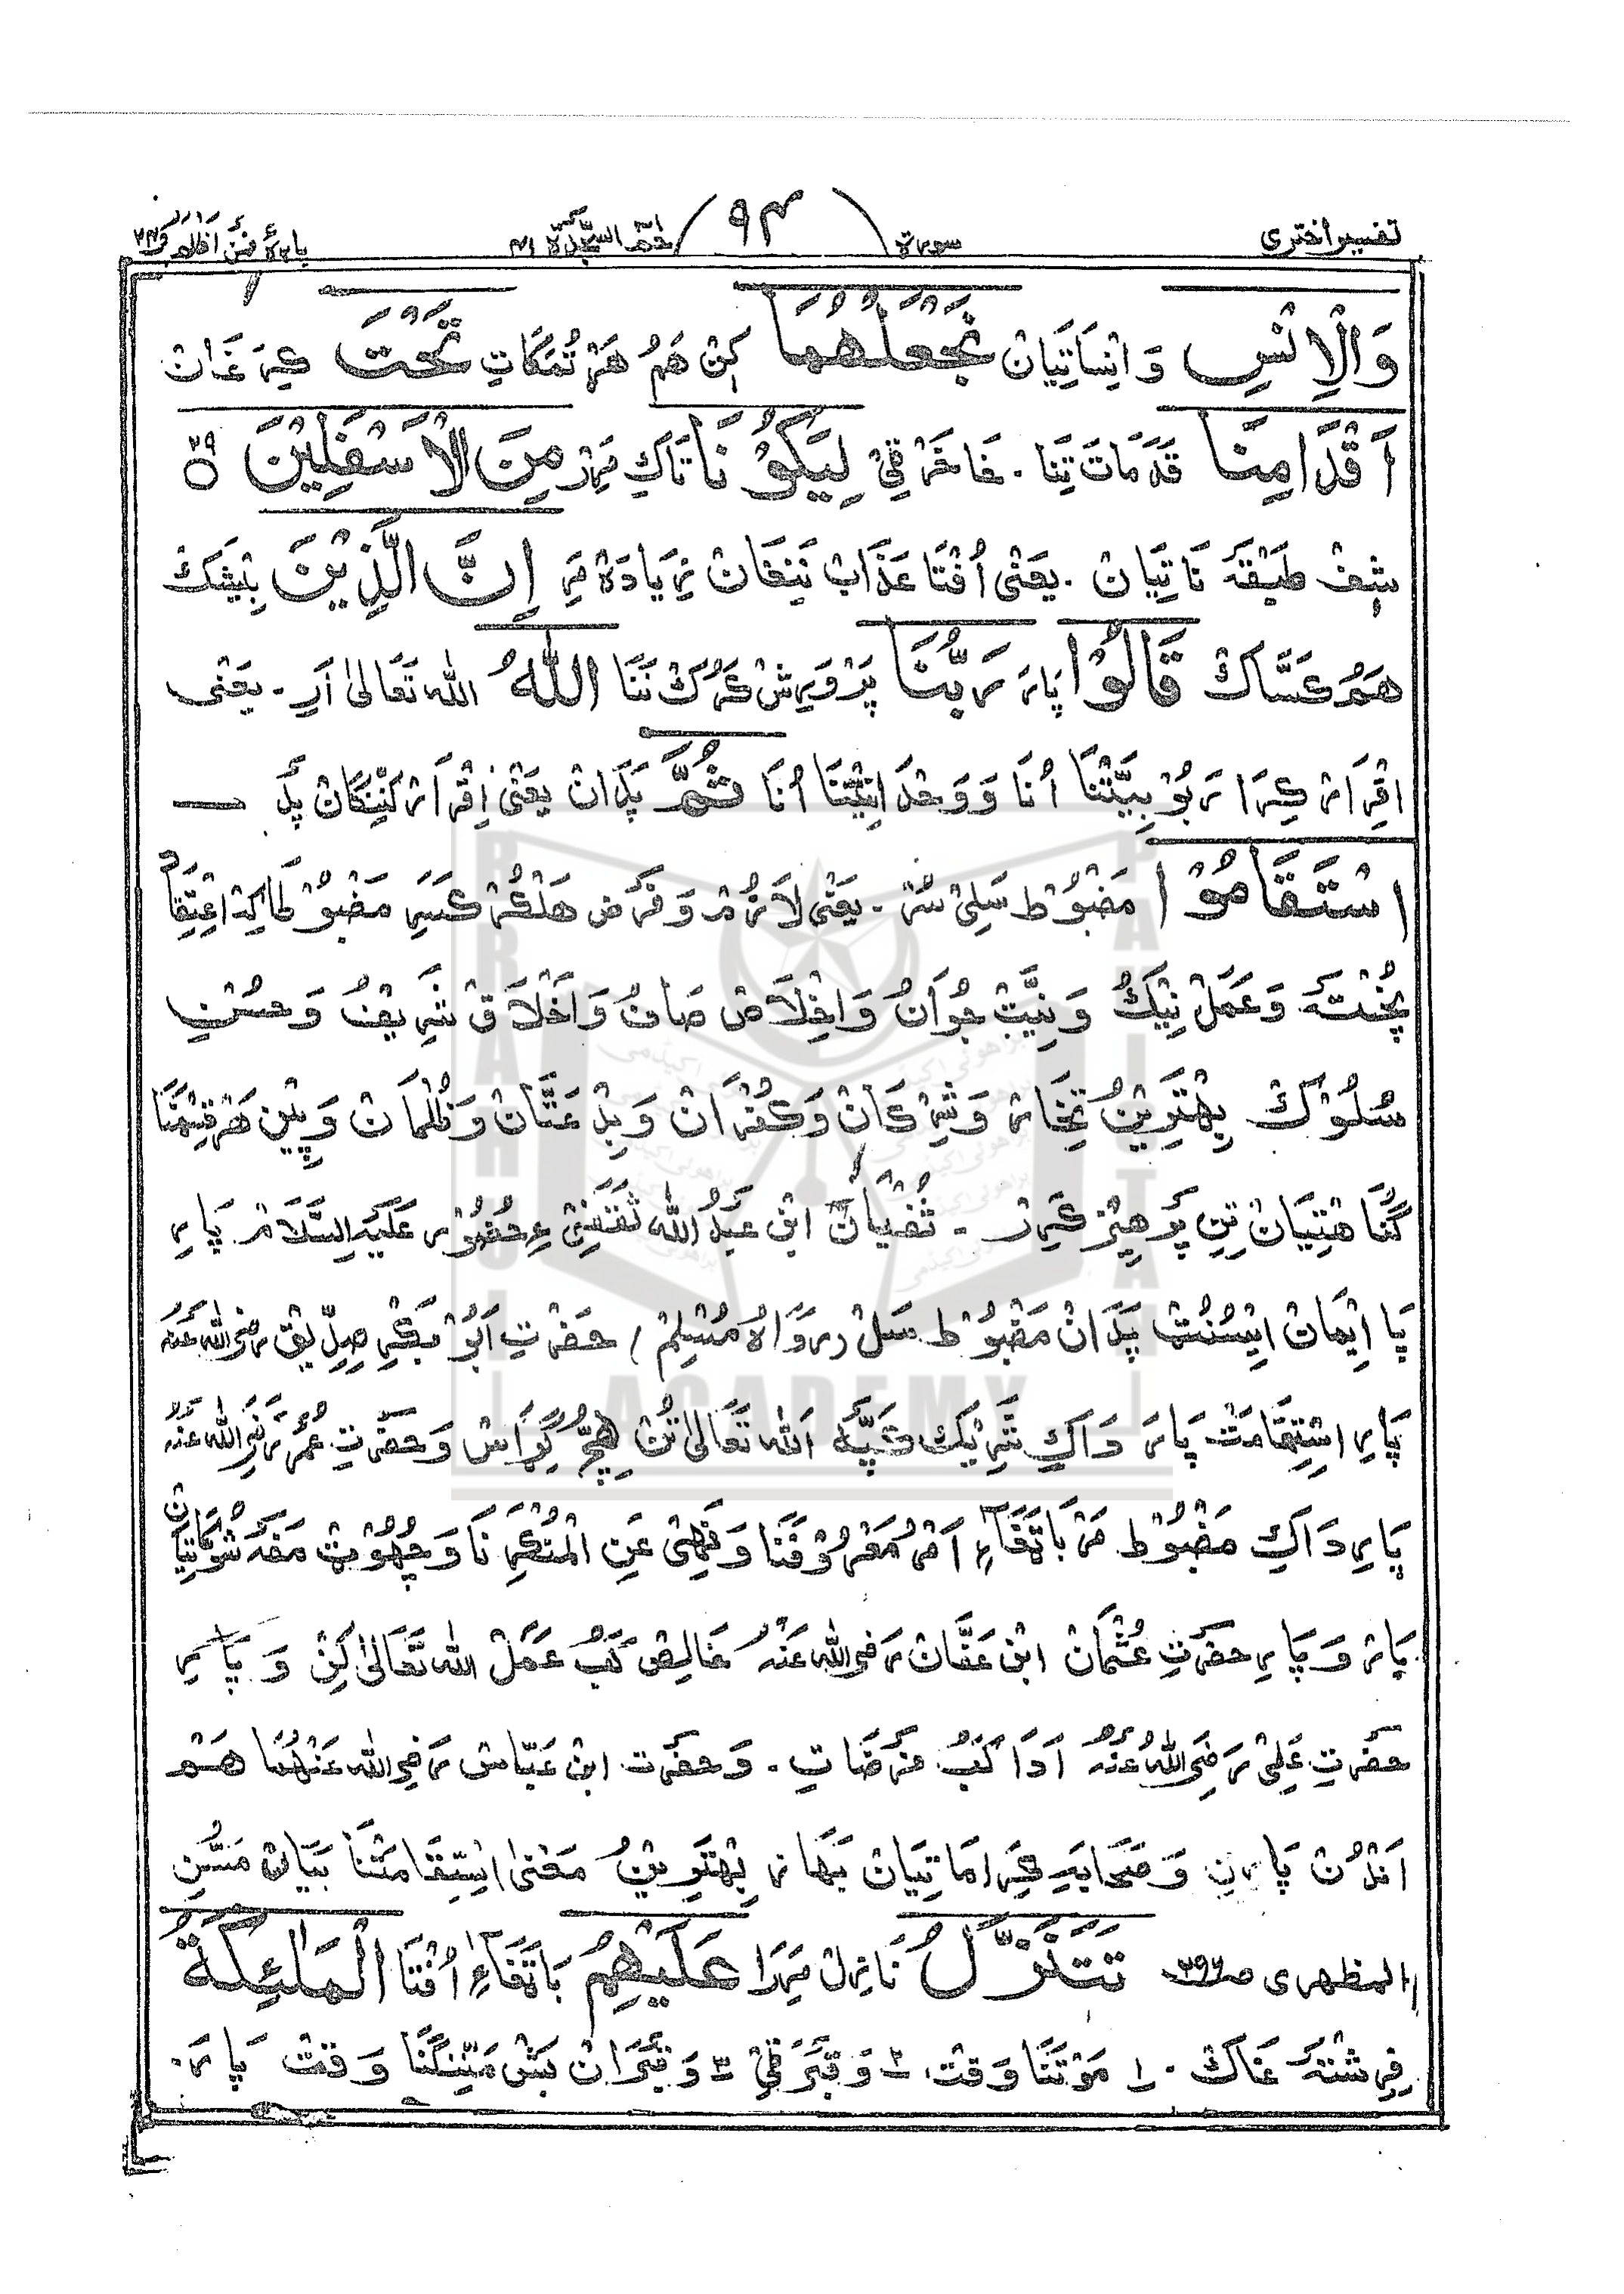 تفسیر اختری سورة (۹۴) حٰمٓ السَّجْدَة ۴۱ پارهٔ فَمَنْ اَظْلَمُ ۲۴
وَالْاِنْسِ وَ اِنْسَاتِیَان نَجْعَلْهُمَا کِن هَمُ هَرْ تُمَکَاتِ تَحْتَ کِیرَغَان
اَقْدَامِنَا قَدَمَات تِنَا ۔ خَاخَرْ ٹِیْ لِیَکُوْنَا تَاکِ مَرِر مِنَ الْاَسْفَلِیْنَ ۲۹
شِفْ طَبَقَه نَاتِیَان ۔ یَعْنِی اُفْتَا عَذَاب نَنِغَان زِیَادَه مَرِ اِنَّ الَّذِیْنَ بِیْشَک
هَمُ کَسَّاک قَالُوْا پَارَر رَبُّنَا پَرْوَرِش کَرُک نَنَا اَللّٰهُ اللّٰه تَعَالیٰ اَرِ ۔ یَعْنِی
اِقْرَار کِرَا رَبُوْبِیَّتْنَا اُنَا وَ وَحْدَانِیَّتْنَا اُنَا ثُمَّ پَدَان یَعْنِی اِقْرَار کَنِّنْگَان پَد
اسْتَقَامُوْا مَضْبُوْط سَلِیْسُر ۔ یَعْنِی لَازِم وَ فَرَض هَلْکُر کَسَرِ مَضْبُوْطَاکِه اِعْتِقَاد
پُخْتَه وَ عَمَل نِیْکُ وَ نِیَّت جُوَانُ وَ اِخْلَاص صَافُ وَ اَخْلَاق شَرِیْفُ وَ حُسْنِ
سُلُوْک بِهْتَرِیْنُ تِخَار وَ شِرْکَان وَ کُفْرَان وَ بِدْعَتَّان وَ ظُلْمَان وَ پِین هَرْ قِسْمنَا
گُنَاهتِیَان تِنِ پَرْهِیْز کَرِر ۔ سُفْیَان ابْن عَبْدُ اللّٰه ثَقَفِیْ ءِ حُضُوْر عَلَیْهِ السَّلَام پَارِ
پَا اِیْمَان اِیْسُنُت پَدَان مَضْبُوْط سَل (رَوَاهُ مُسْلِمْ) حَضْرَتِ اَبُوْ بَکْرِ صِدِّیْق رَضِیَ اللّٰه عَنْهُ
پَارِ اِسْتِقَامَت پَارَ دَاکِ شَرِیْک کَپَّه اَللّٰه تَعَالیٰ تُن هِچُّ گِرَاس وَ حَضْرَتِ عُمَر رَضِیَ اللّٰه عَنْهُ
پَارِ دَاکِ مَضْبُوْط مَر بَاتَّغَاءِ اَمْرِ مَعْرُوْفنَا وَ نَهِیْ عَنِ الْمُنْکَرِنَا وَ چُهُوْٹ مَفَه شُوْکَاتِیَان
پَار وَ پَارِ حَضْرَتِ عُثْمَان ابْن عَفَّان رَضِیَ اللّٰه عَنْهُ خَالِص کَبُ عَمَل اللّٰه تَعَالیٰ کِن وَ پَارِ
حَضْرَتِ عَلِیْ رَضِیَ اللّٰهُ عَنْهُ اَدَا کَبُ فَرَضَاتِ ۔ وَ حَضْرَت ابْن عَبَّاس رَضِیَ اللّٰه عَنْهُمَا هَم
اَنْدُن پَارِن وَ صَحَابَهِ کِرَامَاتِیَان بَهَاز بِهْتَرِیْنُ مَعْنیٰ اِسْتِقَامَتْنَا بَیَان مَسُّنِ
المظهری ص۲۹۶ تَتَنَزَّلُ نَازِل مَرِرَا عَلَیْهِمُ بَاتَّغَاءِ اُفْتَا الْمَلٰٓئِکَةُ
فِرِشْتَه غَاک ۔ ۱ مَوْتنَا وَقْت، ۲ وَ قَبَر ٹِیْ ۳ وَ قَبَرَان بَش مَنِّنْگنَا وَقْت پَارَ